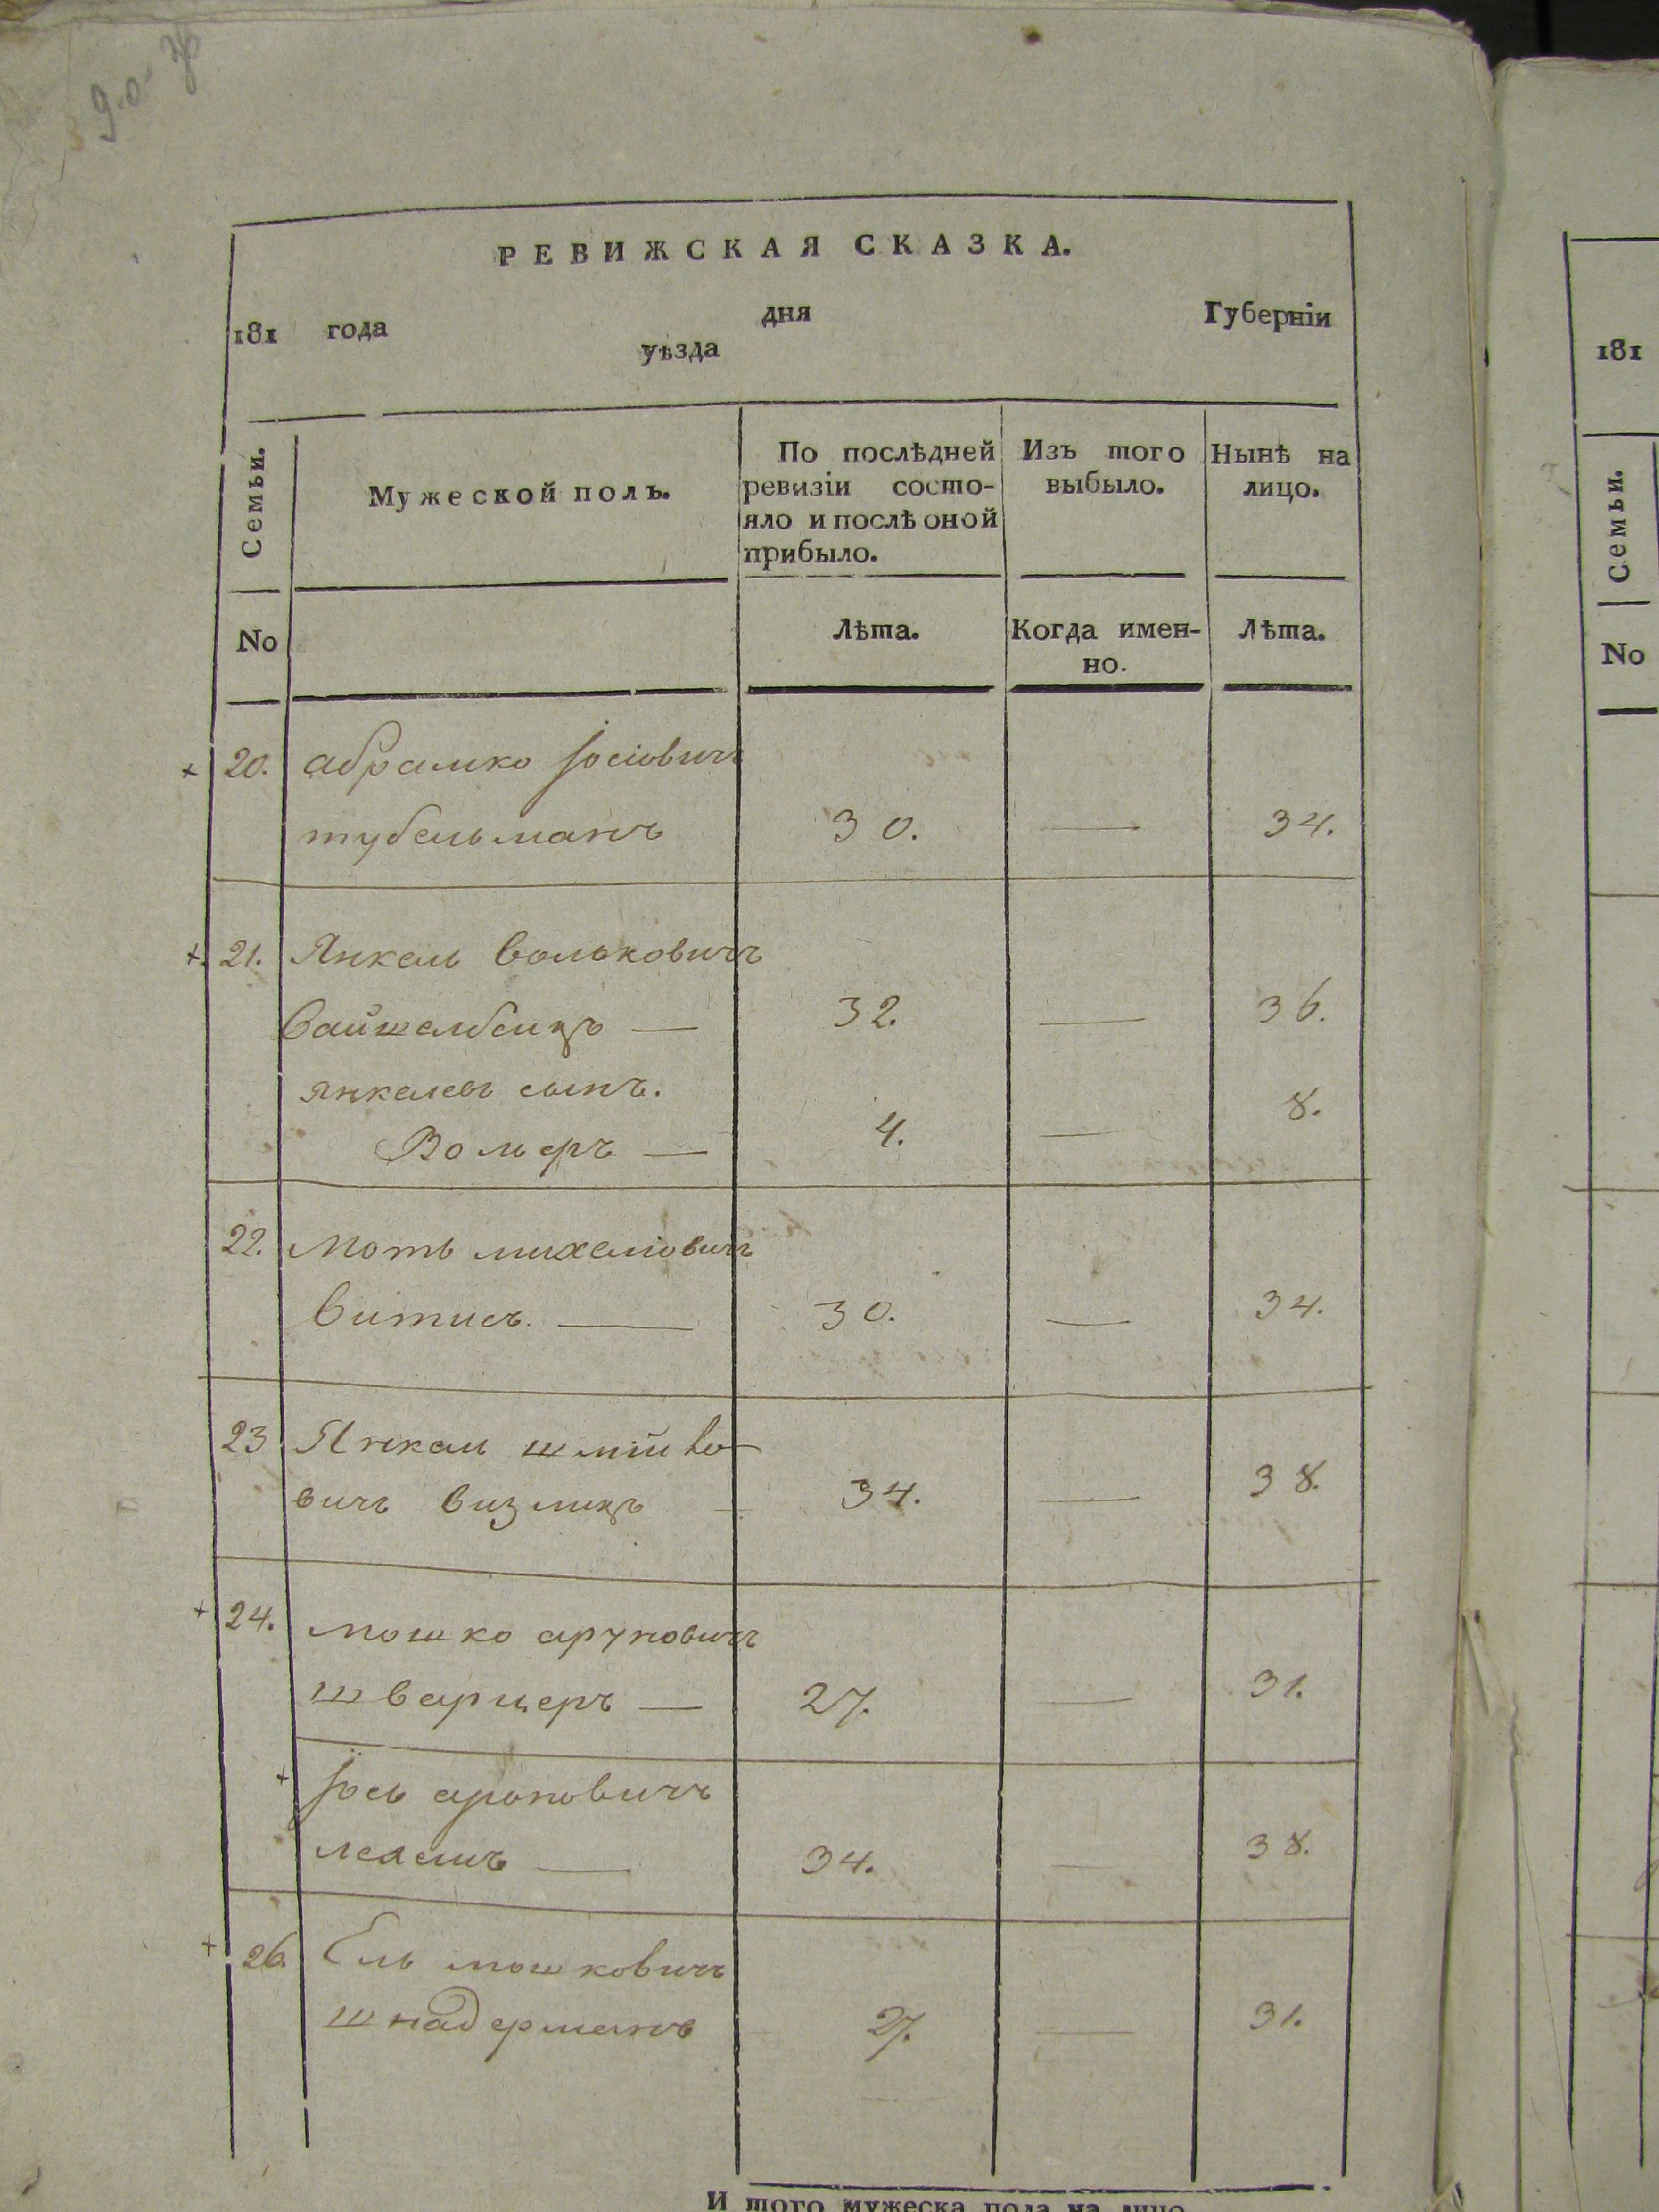 РЕВИЖСКАЯ СКАЗКА.
181 года дня Губернїи
уѣзда
Семьи.
Мужеской полъ.
По послѣдней ревизїи состо-
яло и послѣ оной
прибыло.
Изъ того
выбыло.
Нынѣ на
лицо.
No
Лѣта.
Когда имен-
но.
Лѣта.
+ 20. абрамко Іосіовичъ
тубельманъ 30. — 34.
+ 21. Янкель вольковичъ
— 32. — 36.
янкелевъ сынъ.
Волмеръ — 4. — 8.
22. Моть михеліовичъ
витисъ. — 30. — 34.
23 Янкель
вичъ — 34. — 38.
+ 24. мошко аруновичъ
шварцеръ — 27. — 31.
+ Іось ароновичъ
— 34. — 38.
+ 26. Ель мошковичъ
шнадерманъ 27. — 31.
И того мужеска пола на лицо
181
Семьи.
No